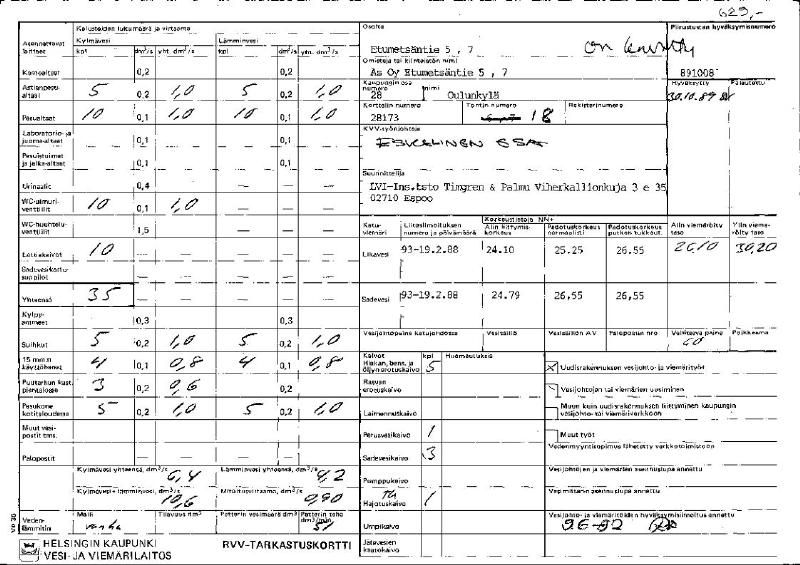 629,-
Kalusteiden lukumäärä ja virtaama
Asennettavat laitteet
Kylmävesi
Lämminvesi
kpl dm³/s yht. dm³/s kpl dm³/s yht. dm³/s
Osoite
Etumetsäntie 5 , 7
Omistaja tai kiinteistön nimi
As Oy Etumetsäntie 5 , 7
Piirustusten hyväksymisnumero
891008
Kaupunginosa numero nimi
28 Oulunkylä
Hyväksytty Palautettu
30.10.89
Korttelin numero Tontin numero Rekisterinumero
28173 18
KVV-työnjohtaja
ESKELINEN ESA
Suunnittelija
LVI-Ins.tsto Timgren & Palmu Viherkallionkuja 3 e 35
02710 Espoo
Kaatoaltaat 0,2 — 0,2 —
Astianpesualtaat 5 0,2 1,0 5 0,2 1,0
Pesualtaat 10 0,1 1,0 10 0,1 1,0
Laboratorio- ja juoma-altaat 0,1 — 0,1 —
Pesuistuimet ja jalka-altaat 0,1 — 0,1 —
Urinaalit 0,4 — — —
WC-uimuriventtiilit 10 0,1 1,0 — — —
WC-huuhteluventtiilit 1,5 — — —
Lattiakaivot 10 — — — — —
Sadevesikattosuppilot — — — — —
Yhteensä 35 — — — — —
Kylpyammeet 0,3 0,3
Suihkut 5 0,2 1,0 5 0,2 1,0
15 mm:n käyttöhanat 4 0,1 0,8 4 0,1 0,8
Puutarhan kast. pientalossa 3 0,2 0,6 0,2
Pesukone kotitaloudessa 5 0,2 1,0 5 0,2 1,0
Muut vesipostit tms.
Palopostit — — —
Kylmävesi yhteensä, dm³/s 6,4
Lämminvesi yhteensä, dm³/s 4,2
Kylmävesi+lämminvesi, dm³/s 10,6
Mitoitusvirtaama, dm³/s 0,90
Vedenlämmitin
Malli Tilavuus dm³ Patterin vesimäärä dm³ Patterin teho
vanha
Katuviemäri
Liitosilmoituksen numero ja päivämäärä
Korkeustietoja NN+
Alin liittymiskorkeus
Padotuskorkeus normaalisti
Padotuskorkeus putken tukkeut.
Alin viemäröity taso
Ylin viemäröity taso
Likavesi 93-19.2.88 24.10 25.25 26.55 26,10 30,20
Sadevesi 93-19.2.88 24.79 26,55 26,55
Vesijohtopaine katujohdossa Vesisäiliö Vesisäiliön AV Palopostin nro Vallitseva paine Poikkeama
60
Kaivot kpl Huomautuksia
Hiekan, bens. ja öljynerotuskaivo 5
Rasvan erotuskaivo
Laimennuskaivo
Perusvesikaivo 1
Sadevesikaivo 3
Pumppukaivo
Hajotuskaivo 1
Umpikaivo
Jätevesien
X Uudisrakennuksen vesijohto- ja viemärityöt
Vesijohtojen tai viemärien uusiminen
Muun kuin uudisrakennuksen liittyminen kaupungin vesijohto- tai viemäriverkkoon
Muut työt
Vedenmyyntisopimus lähetetty verkkotoimistoon
Vesijohtojen ja viemärien asennuslupa annettu
Vesimittarin asennuslupa annettu
Vesijohto- ja viemäritöiden hyväksymisilmoitus annettu
HELSINGIN KAUPUNKI
VESI- JA VIEMÄRILAITOS
RVV-TARKASTUSKORTTI